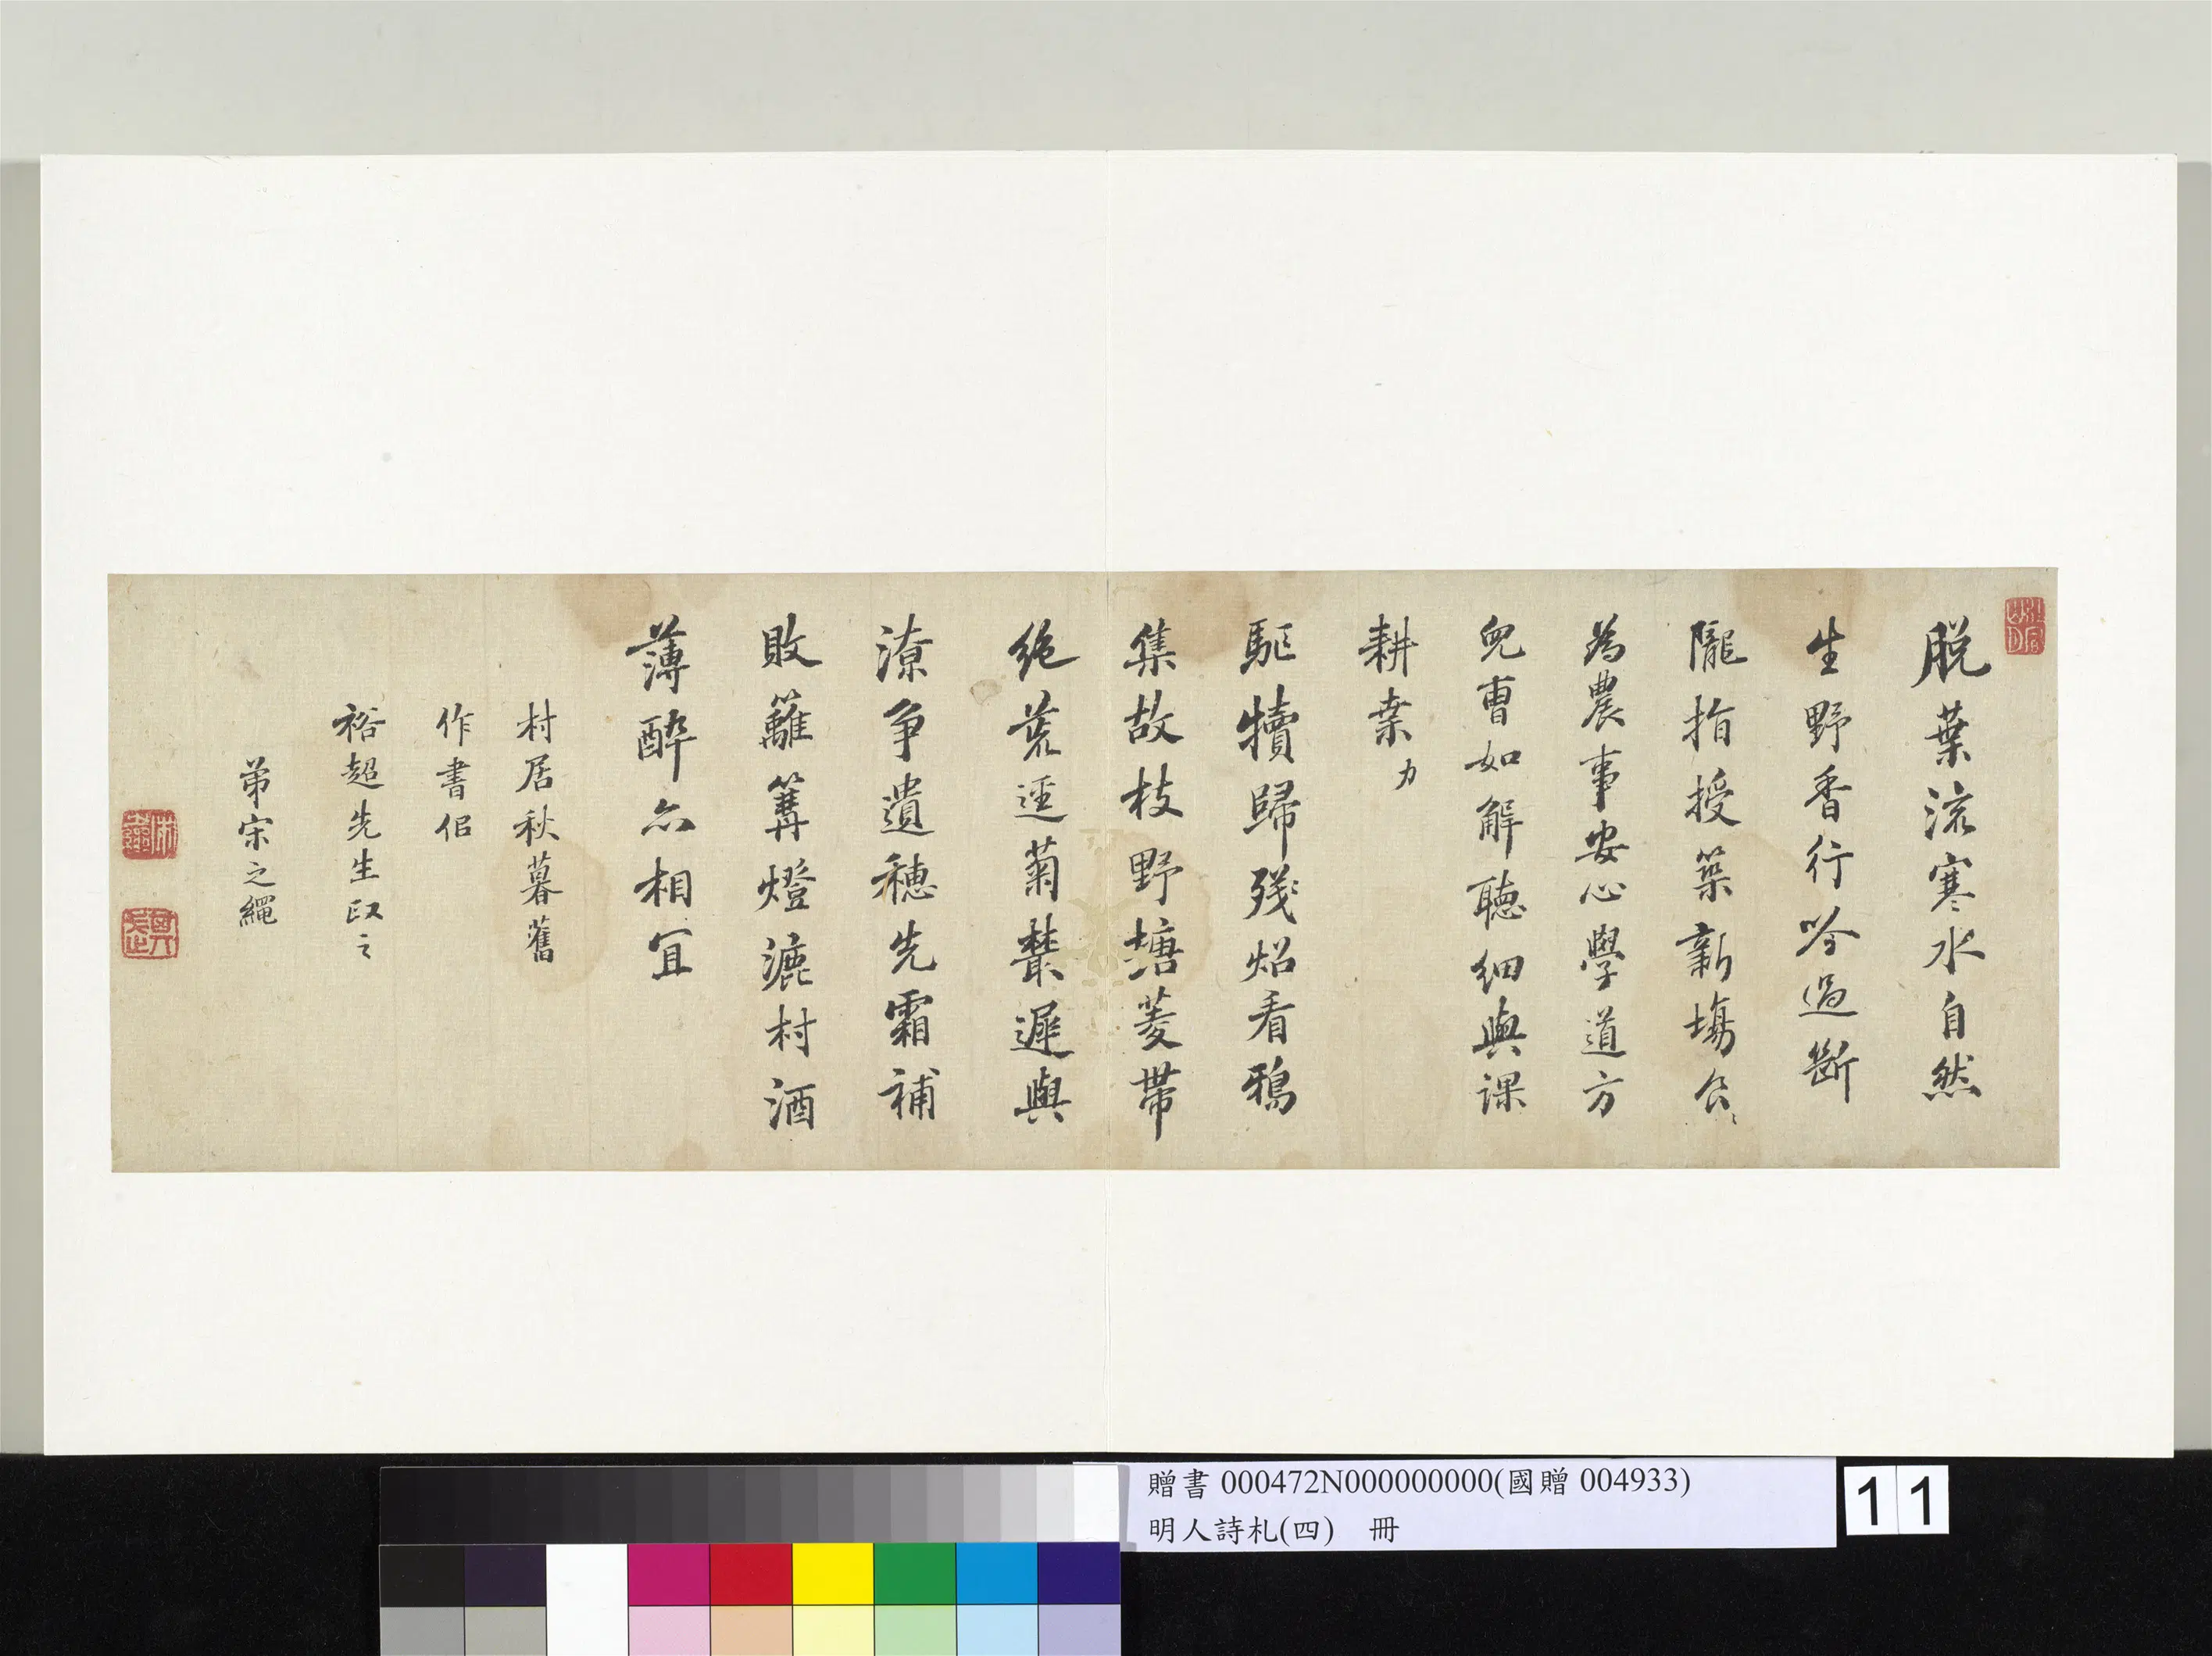 脫葉流寒水自然
生野香行吟過斷
隴指授築新場
為農事安心學道方
兒曹如解聽細與課
耕桑力
驅犢歸殘炤看鴉
集故枝野塘菱帶
絕荒逕菊叢遲與
潦爭遺穗先霜補
敗籬篝燈漉村酒
薄醉亦相宜
村居秋暮舊
作書佀
裕超先生政之
弟宋之繩
贈書 000472N000000000(國贈 004933)
明人詩札(四) 冊
11